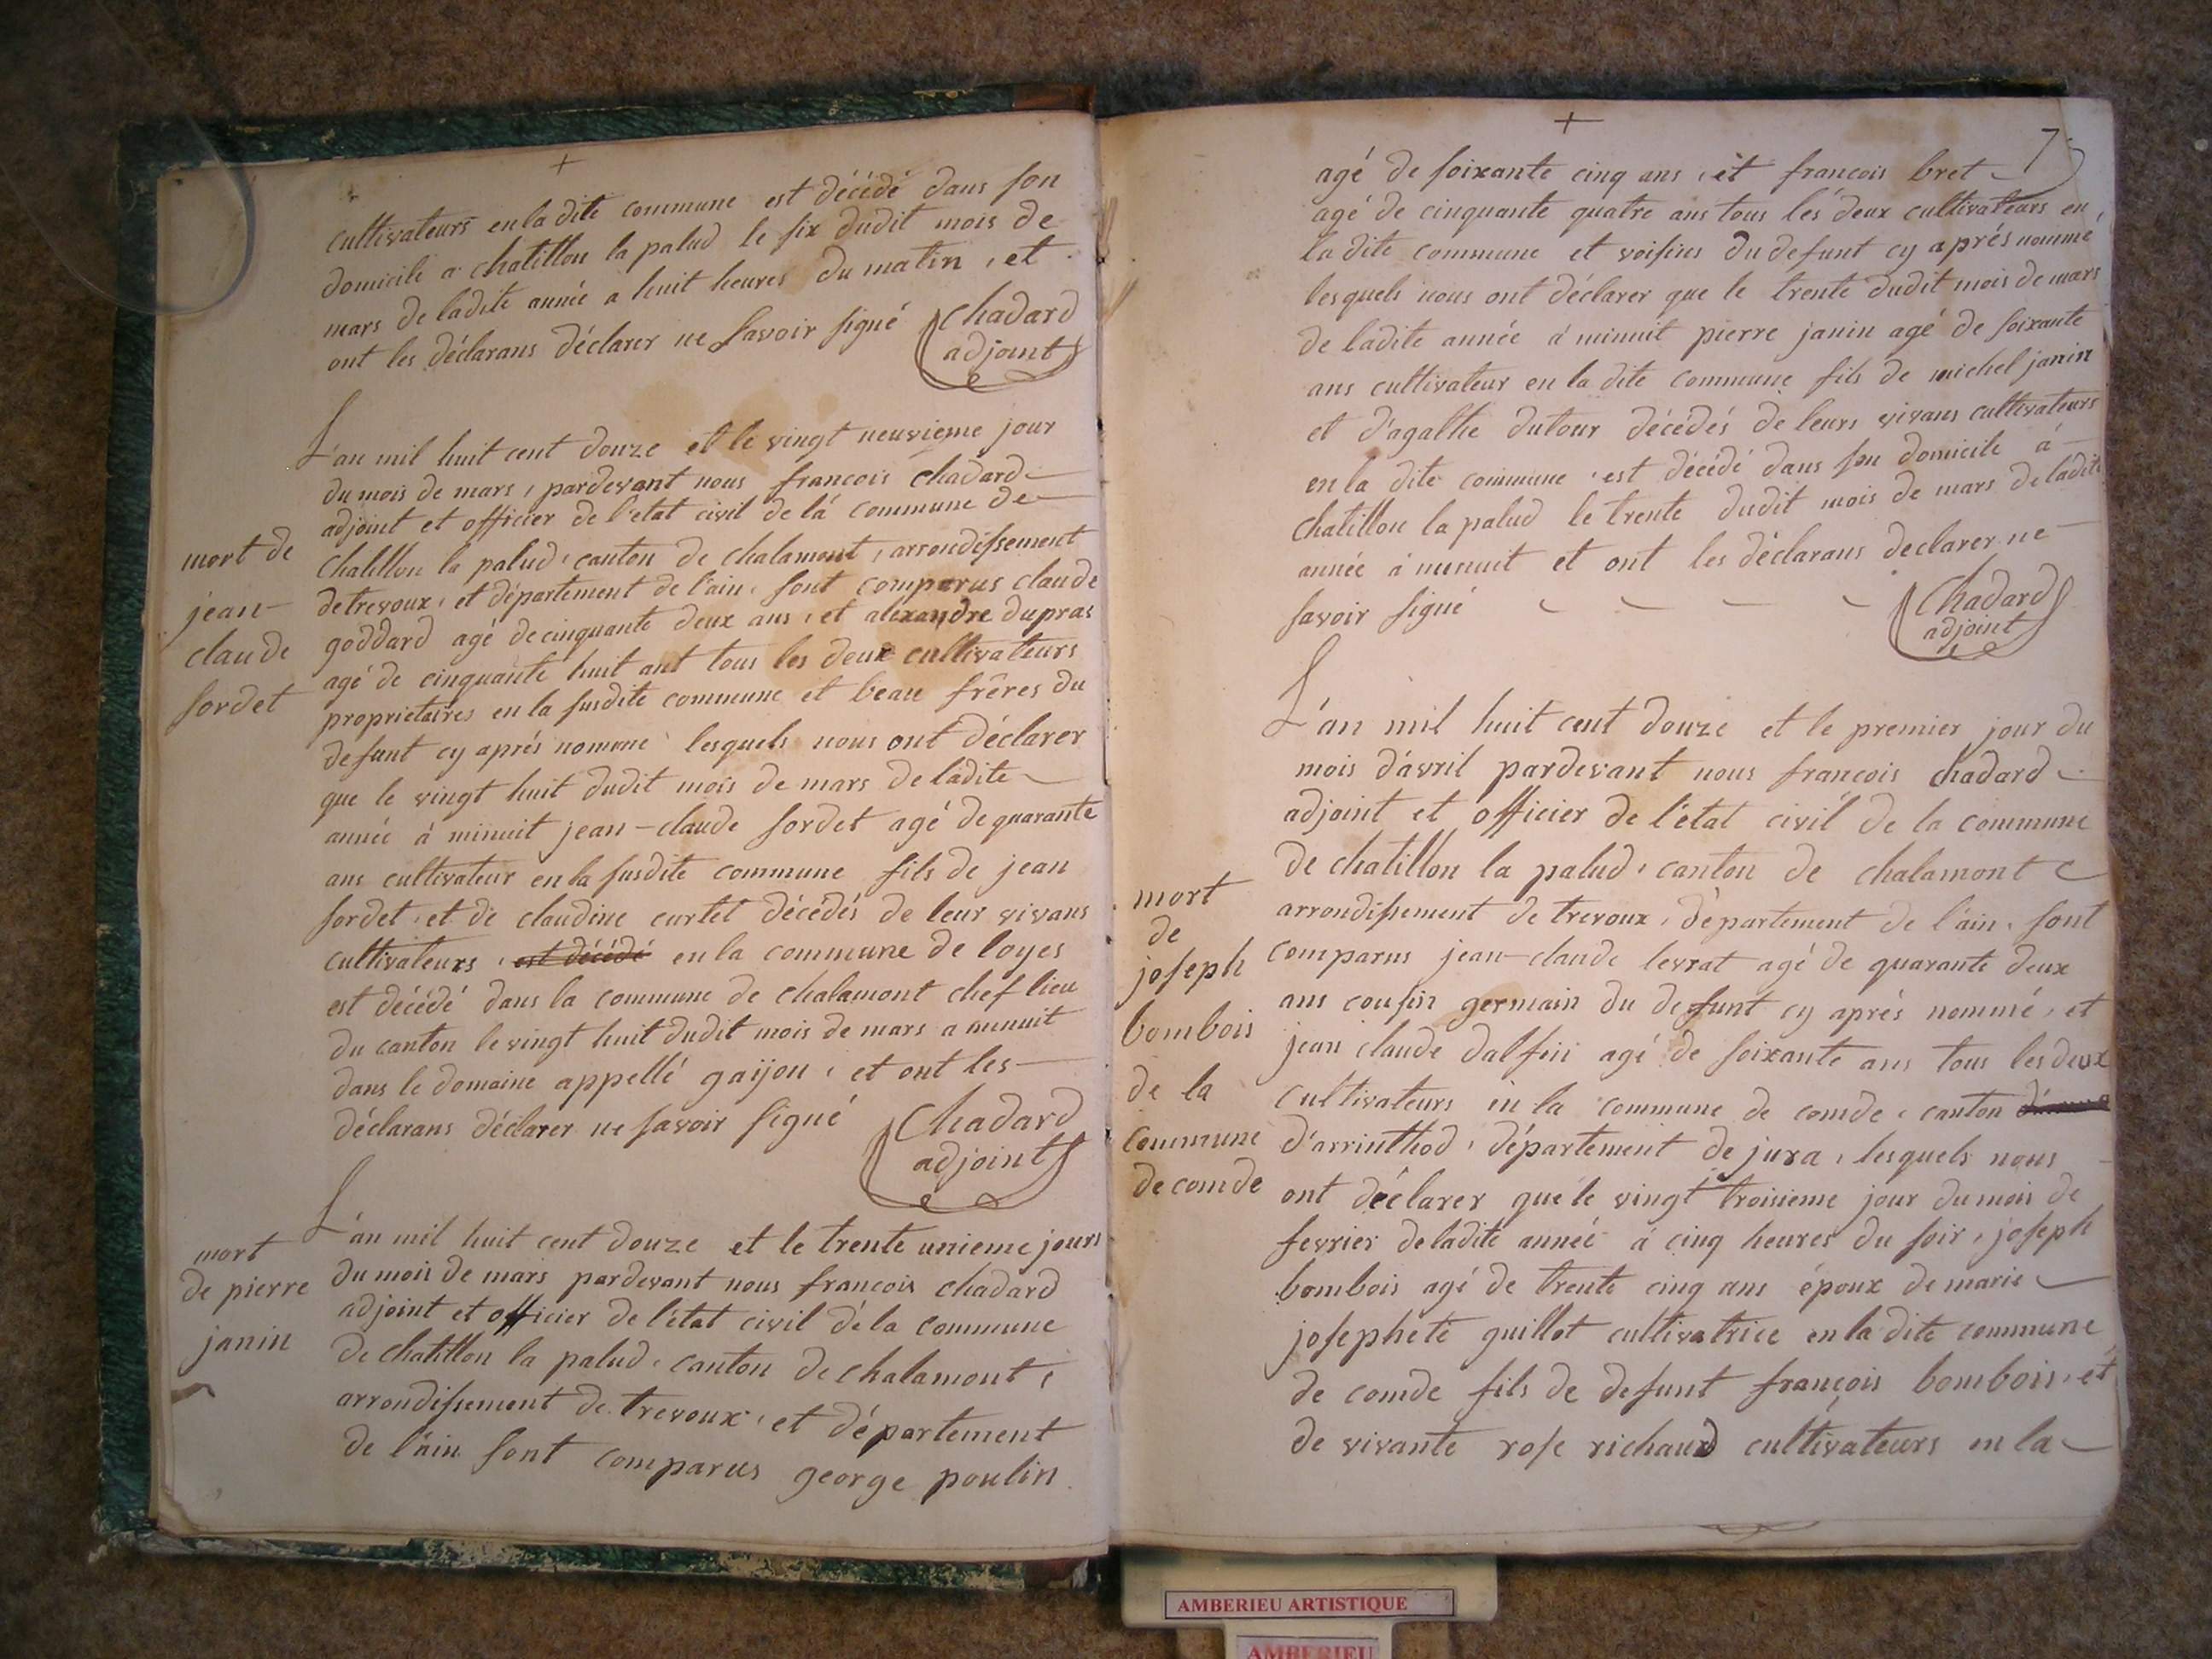 +
cultivateurs en la dite commune est décédé dans son
domicile a chatillon la palud le six dudit mois de
mars de ladite année a huit heures du matin, et
ont les déclarans déclarer ne savoir signé
Chadard
adjoint
L'an mil huit cent douze et le vingt neuvieme jour
du mois de mars, pardevant nous francois chadard
adjoint et officier de l'etat civil de la commune de
chatillon la palud, canton de chalamont, arrondissement
de trevoux, et département de l'ain, sont comparus claude
goddard agé de cinquante deux ans, et alexandre dupras
agé de cinquante huit ant tous les deux cultivateurs
proprietaires en la susdite commune et beau frères du
defunt cy aprés nommé lesquels nous ont déclarer
que le vingt huit dudit mois de mars de ladite
année à minuit jean-claude sordet agé de quarante
ans cultivateur en la susdite commune fils de jean
sordet et de claudine curtet décédés de leur vivans
cultivateurs, est décédé en la commune de loyes
est décédé dans la commune de chalamont chef lieu
du canton le vingt huit dudit mois de mars a minuit
dans le domaine appellé gaijou, et ont les
déclarans déclarer ne savoir signé
Chadard
adjoint
mort de
jean
claude
sordet
L'an mil huit cent douze et le trente unieme jours
du mois de mars pardevant nous francois chadard
adjoint et officier de l'état civil de la commune
de chatillon la palud, canton de chalamont,
arrondissement de trevoux, et département
de l'ain sont comparus george poulin
mort
de pierre
janin
+
7
agé de soixante cinq ans, et francois bret
agé de cinquante quatre ans tous les deux cultivateurs en
la dite commune et voisins du defunt cy aprés nommé,
lesquels nous ont déclarer que le trente dudit mois de mars
de ladite année à minuit pierre janin agé de soixante
ans cultivateur en la dite commune fils de michel janin
et d'agathe dutour décédés de leurs vivans cultivateurs
en la dite commune, est décédé dans son domicile à
chatillon la palud le trente dudit mois de mars de ladite
année à minuit et ont les déclarans declarer ne
savoir signé
Chadard
adjoint
L'an mil huit cent douze et le premier jour du
mois d'avril pardevant nous francois chadard
adjoint et officier de l'état civil de la commune
de chatillon la palud, canton de chalamont
arrondissement de trevoux, département de l'ain, sont
comparus jean-claude levrat agé de quarante deux
ans cousin germain du defunt cy aprés nommé, et
jean claude dalfin agé de soixante ans tous les deux
cultivateurs in la commune de comde, canton
d'arrinthod, département de jura, lesquels nous
ont déclarer que le vingt troisieme jour du mois de
fevrier de ladite année à cinq heures du soir, joseph
bombois agé de trente cinq ans époux de marie
josephete guillot cultivatrice en la dite commune
de comde fils de defunt françois bombois, et
de vivante rose richaud cultivateurs en la
mort
de
joseph
bombois
de la
commune
de comde
AMBERIEU ARTISTIQUE
AMBERIEU